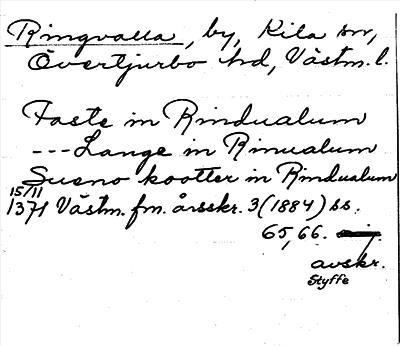 Ringvalla, by, Kila sn,
Övertjurbo hd, Västm. l.
Faste in Rindualum
--- Lange in Rinualum
Sueno kootter in Rindualum
15/11
1371 Västm. fm. årsskr. 3 (1884) ss.
65, 66.
avskr.
Styffe